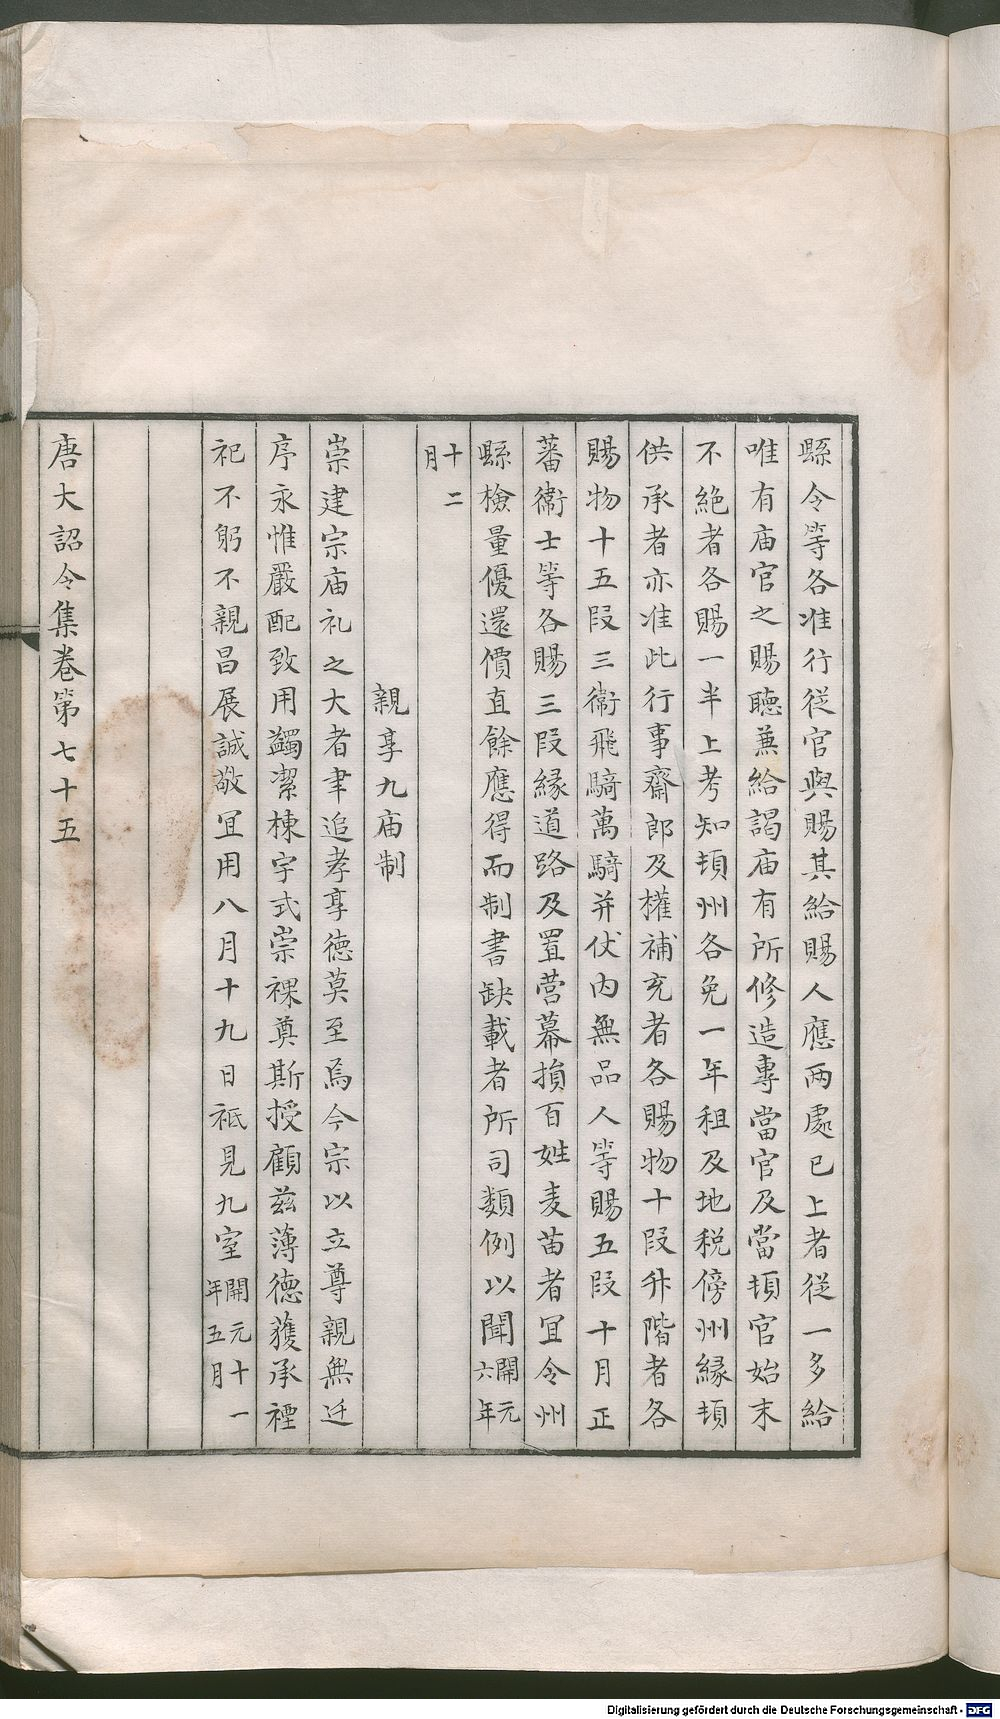 縣令等各准行從官與賜其給賜人應兩處已上者從一多給
唯有庙官之賜聽兼給謁庙有所修造專當官及當頓官始末
不絶者各賜一半上考知頓州各免一年租及地税傍州緣頓
供承者亦准此行事齋郎及權補充者各賜物十叚升階者各
賜物十五叚三衛飛騎萬騎并伏内無品人等賜五叚十月正
蕃衛士等各賜三叚緣道路及置營幕損百姓麦苗者冝令州
縣檢量優還價直餘應得而制書缺載者所司類例以聞開元六年
十二月
親享九庙制
崇建宗庙礼之大者聿追孝享德莫至焉今宗以立尊親無迁
序永惟嚴配致用蠲潔棟宇式崇祼奠斯授顧茲薄德獲承禋
祀不躬不親曷展誠敬冝用八月十九日祗見九室開元十一年五月
唐大詔令集卷第七十五
Digitalisierung gefördert durch die Deutsche Forschungsgemeinschaft - DFG